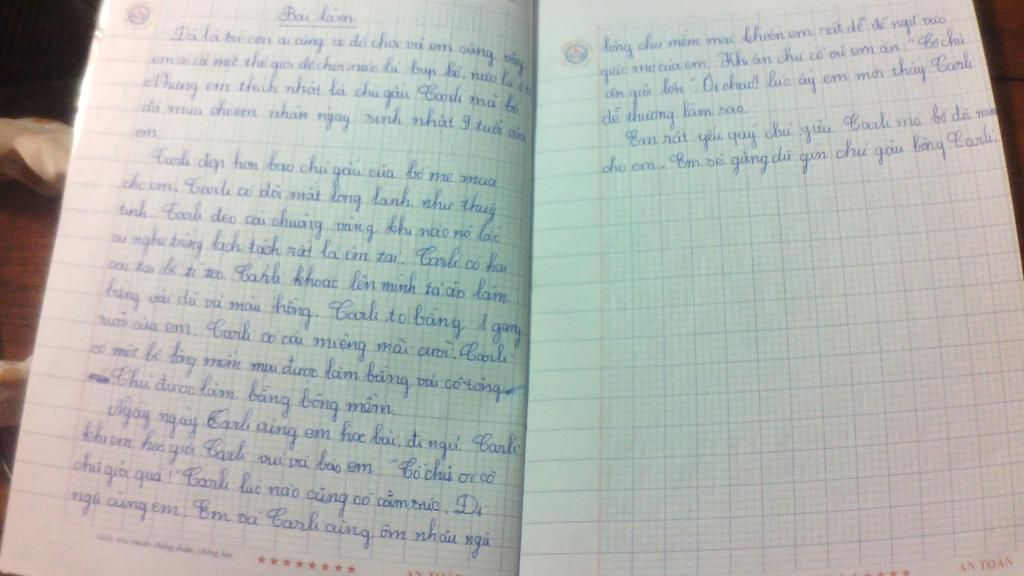 Bài làm
Đã là trẻ con ai cũng có đồ chơi và em cũng vậy
em có cả một thế giới đồ chơi nào là búp bê, nào là
Nhưng em thích nhất là chú gấu Carli mà bố
đã mua cho em nhân ngày sinh nhật 9 tuổi của
em.
Carli đẹp hơn bao chú gấu của bố mẹ mua
cho em. Carli có đôi mắt long lanh như thuỷ
tinh. Carli đeo cái chuông vàng khi nào nó lắc
nghe tiếng lạch tạch rất là êm tai. Carli có hai
cái tai bé tí teo. Carli khoác lên mình tà áo làm
bằng vải dù và màu hồng. Carli to bằng 1 gang
rưỡi của em. Carli có cái miệng mãi cười. Carli
có một bộ lông mềm mại được làm bằng vải cô tông
Chú được làm bằng bông mềm.
Ngày ngày Carli cùng em học bài, đi ngủ. Carli
khi em học giỏi Carli vui và bảo em "Cô chủ ơi cô
chủ giỏi quá!" Carli lúc nào cũng có cảm xúc. Đi
ngủ cùng em. Em và Carli cùng ôm nhau ngủ
Giấy tiêu chuẩn chống thấm, chống lóa
AN TOÀN
lông chú mềm mại khiến em rất dễ để ngủ vào
giấc mơ của em. Khi ăn chú cổ vũ em ăn: "Cô chủ
ăn giỏi lên" Ôi chao! lúc ấy em mới thấy Carli
dễ thương làm sao.
Em rất yêu quý chú gấu Carli mà bố đã mua
cho em. Em sẽ gắng dữ gìn chú gấu bông Carli.
AN TOÀN